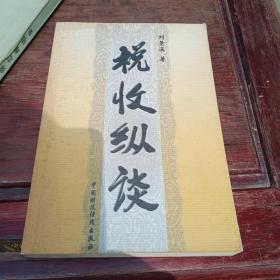 刘景溪 著
税收纵谈
中国财政经济出版社